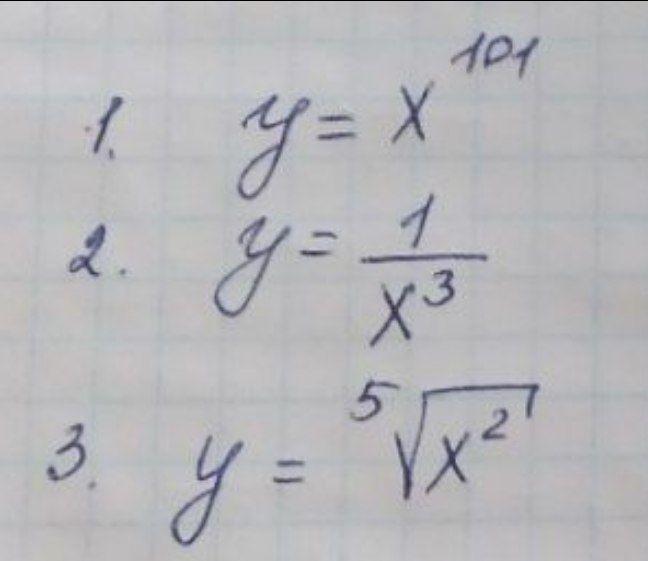 1. y = x^101
2. y = 1/x^3
3. y = ⁵√x²